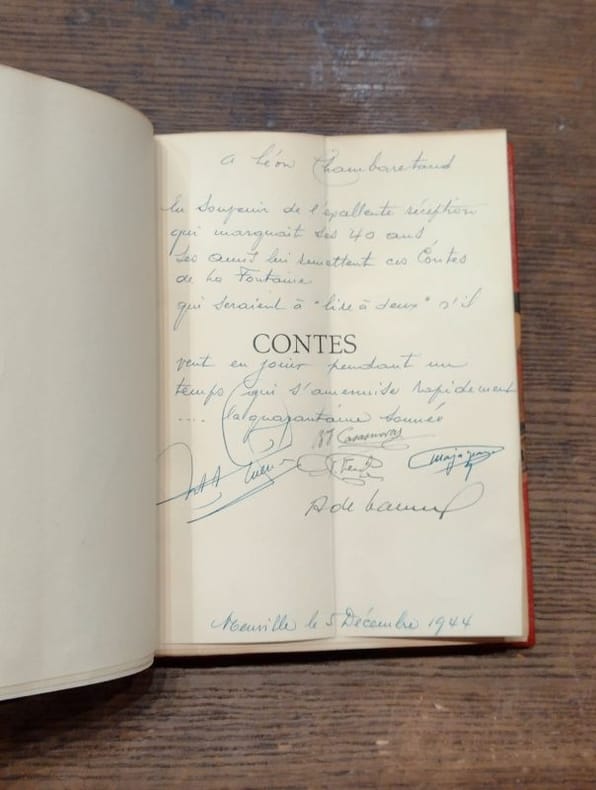 A Léon Chambaretaud
En Souvenir de l'excellente réception
qui marquait ses 40 ans
Ses amis lui remettent ces Contes
de La Fontaine
qui seraient à "lire à deux" s'il
CONTES
veut en jouir pendant un
temps qui s'amenuise rapidement
.... la quarantaine sonnée
Casanovas
Neuville le 5 Décembre 1944